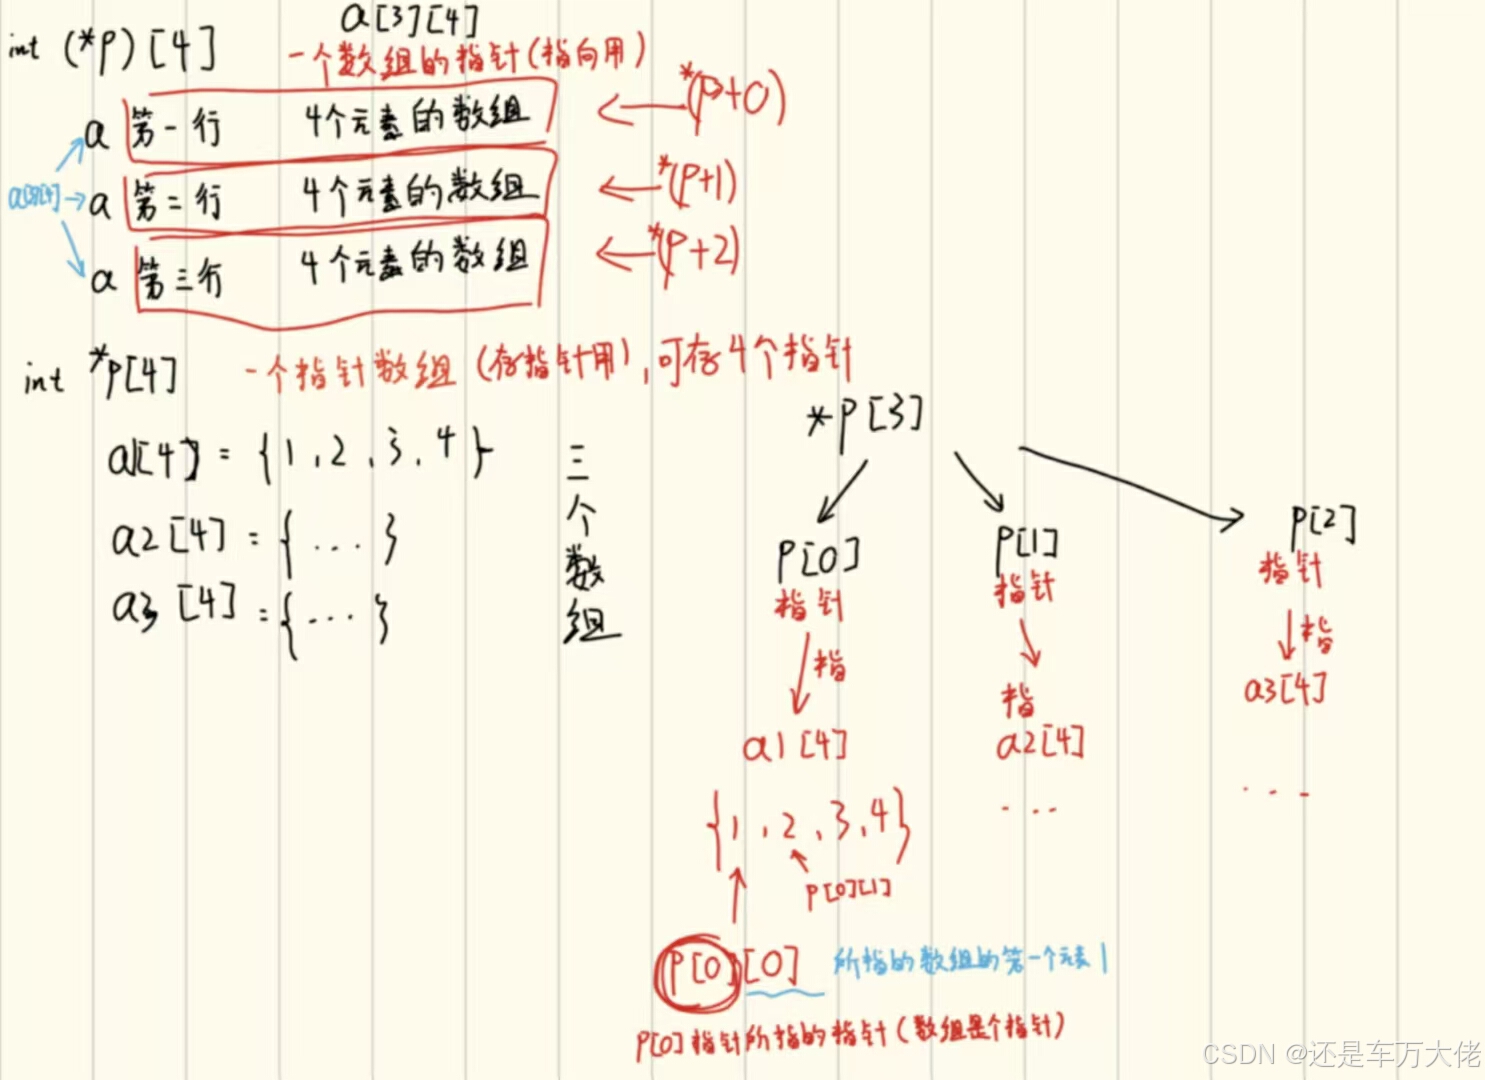 a[3][4]
int (*p)[4]
一个数组的指针(指向用)
a 第一行 4个元素的数组 *(p+0)
a[3][4] a 第二行 4个元素的数组 *(p+1)
a 第三行 4个元素的数组 *(p+2)
int *p[4] 一个指针数组(存指针用),可存4个指针
*p[3]
a1[4] = {1,2,3,4}
a2[4] = {...}
a3[4] = {...}
三个数组
p[0] p[1] p[2]
指针 指针 指针
指 指 指
a1[4] a2[4] a3[4]
{1,2,3,4} ... ...
p[0][1]
p[0][0] 所指的数组的第一个元素1
p[0]指针所指的指针(数组是个指针)
CSDN @还是车万大佬